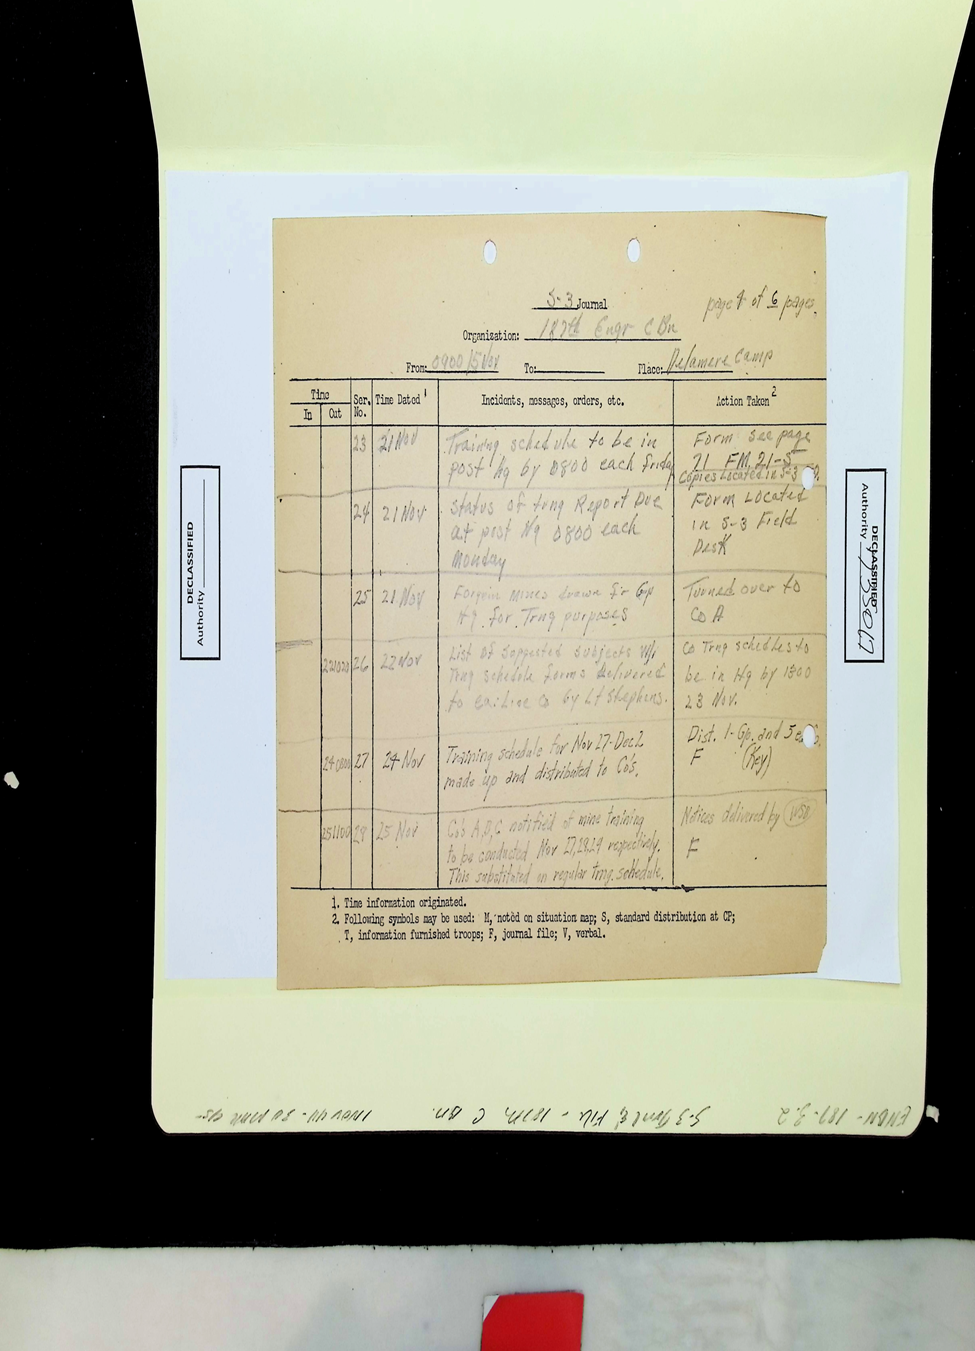 S-3 Journal
page 4 of 6 pages.
Organization: 187th Engr C Bn
From: 0900/5 Nov To: Place: Delamere Camp
Time
In Out Ser. No. Time Dated 1 Incidents, messages, orders, etc. Action Taken 2
23 21 Nov Training schedule to be in
post Hq by 0800 each Friday
Form see page
21 FM. 21-5
Copies Located in S-3
24 21 Nov Status of trng Report Due
at post Hq 0800 each
Monday
Form Located
in S-3 Field
Desk
25 21 Nov Foreign Mines drawn fr Gp
Hq. for Trng purposes
Turned over to
Co A
221020 26 22 Nov List of Suggested Subjects W/
Trng schedule forms delivered
to ea. Line Co by Lt Stephens.
Co Trng schedules to
be in Hq by 1300
23 Nov.
27 24 Nov Training schedule for Nov 27-Dec 2
made up and distributed to Co's.
Dist. 1-Gp. and 5
F (Key)
251100 28 25 Nov Co's A, B, C notified of mine training
to be conducted Nov 27, 28, 29 respectively.
This substituted on regular trng. schedule.
Notices delivered by
F
1. Time information originated.
2. Following symbols may be used: M, noted on situation map; S, standard distribution at CP;
T, information furnished troops; F, journal file; V, verbal.
DECLASSIFIED
Authority
DECLASSIFIED
Authority 735017
ENBN - 187 - 3.2 S-3 Jnl & File - 187th C Bn.